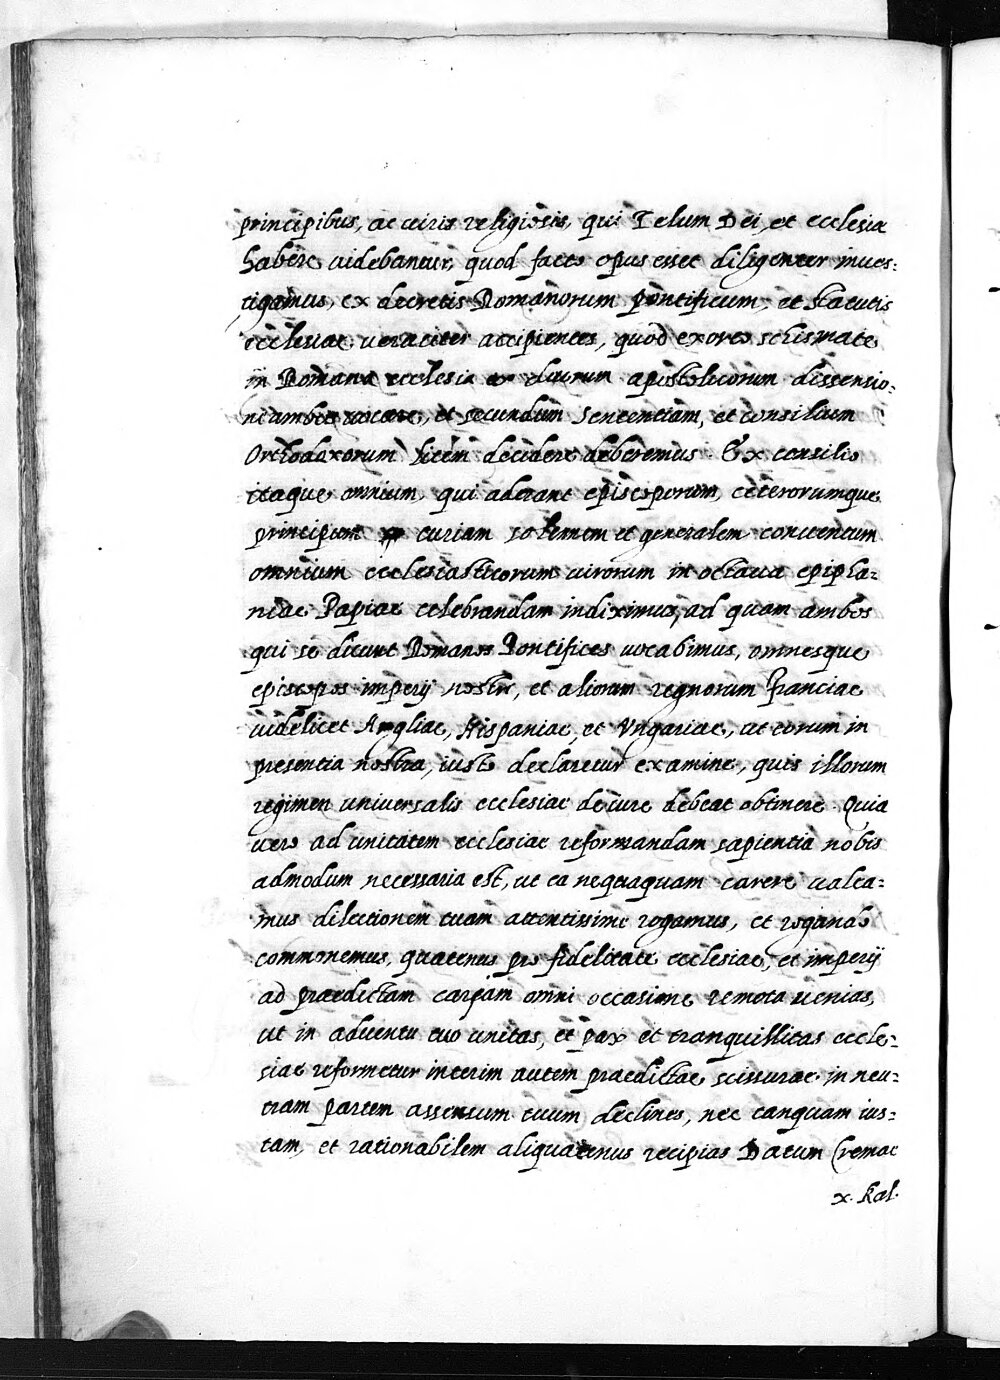 principibus, ac uiris religiosis, qui Zelum Dei, et ecclesia
habere uidebantur, quod facto opus esset diligenter inues:
tigamus, ex decretis Romanorum pontificum, et statutis
ecclesiae, veraciter accipientes, quod exorto schismate
in Romana ecclesia duorum apostolicorum dissensio:
ni ambos uocare, et secundum sententiam, et consilium
Orthodoxorum litem decidere deberemus. Ex consilio
itaque omnium, qui aderant episcoporum, ceterorumque
principum curiam solemnem et generalem conuentum
omnium ecclesiasticorum uirorum in octaua epipha:
niae Papiae celebrandam indiximus, ad quam ambos
qui se dicunt Romanos Pontifices uocabimus, omnesque
episcopos imperij nostri, et aliorum regnorum Franciae
uidelicet Angliae, Hispaniae, et Vngariae, ut eorum in
presentia nostra, iusto declaretur examine, quis illorum
regimen universalis ecclesiae de iure debeat obtinere. Quia
uero ad unitatem ecclesiae reformandam sapientia nobis
admodum necessaria est, ut ea nequaquam carere ualea:
mus dilectionem tuam attentissime rogamus, et rogando
commonemus, quatenus pro fidelitate ecclesiae, et imperij
ad praedictam curiam omni occasione remota uenias,
ut in aduentu tuo unitas, et pax et tranquillitas eccle:
siae reformetur interim autem praedictae scissurae in neu:
tram partem assensum tuum declines, nec tanquam ius:
tam, et rationabilem aliquatenus recipias Datum Cremae
x. Kal.